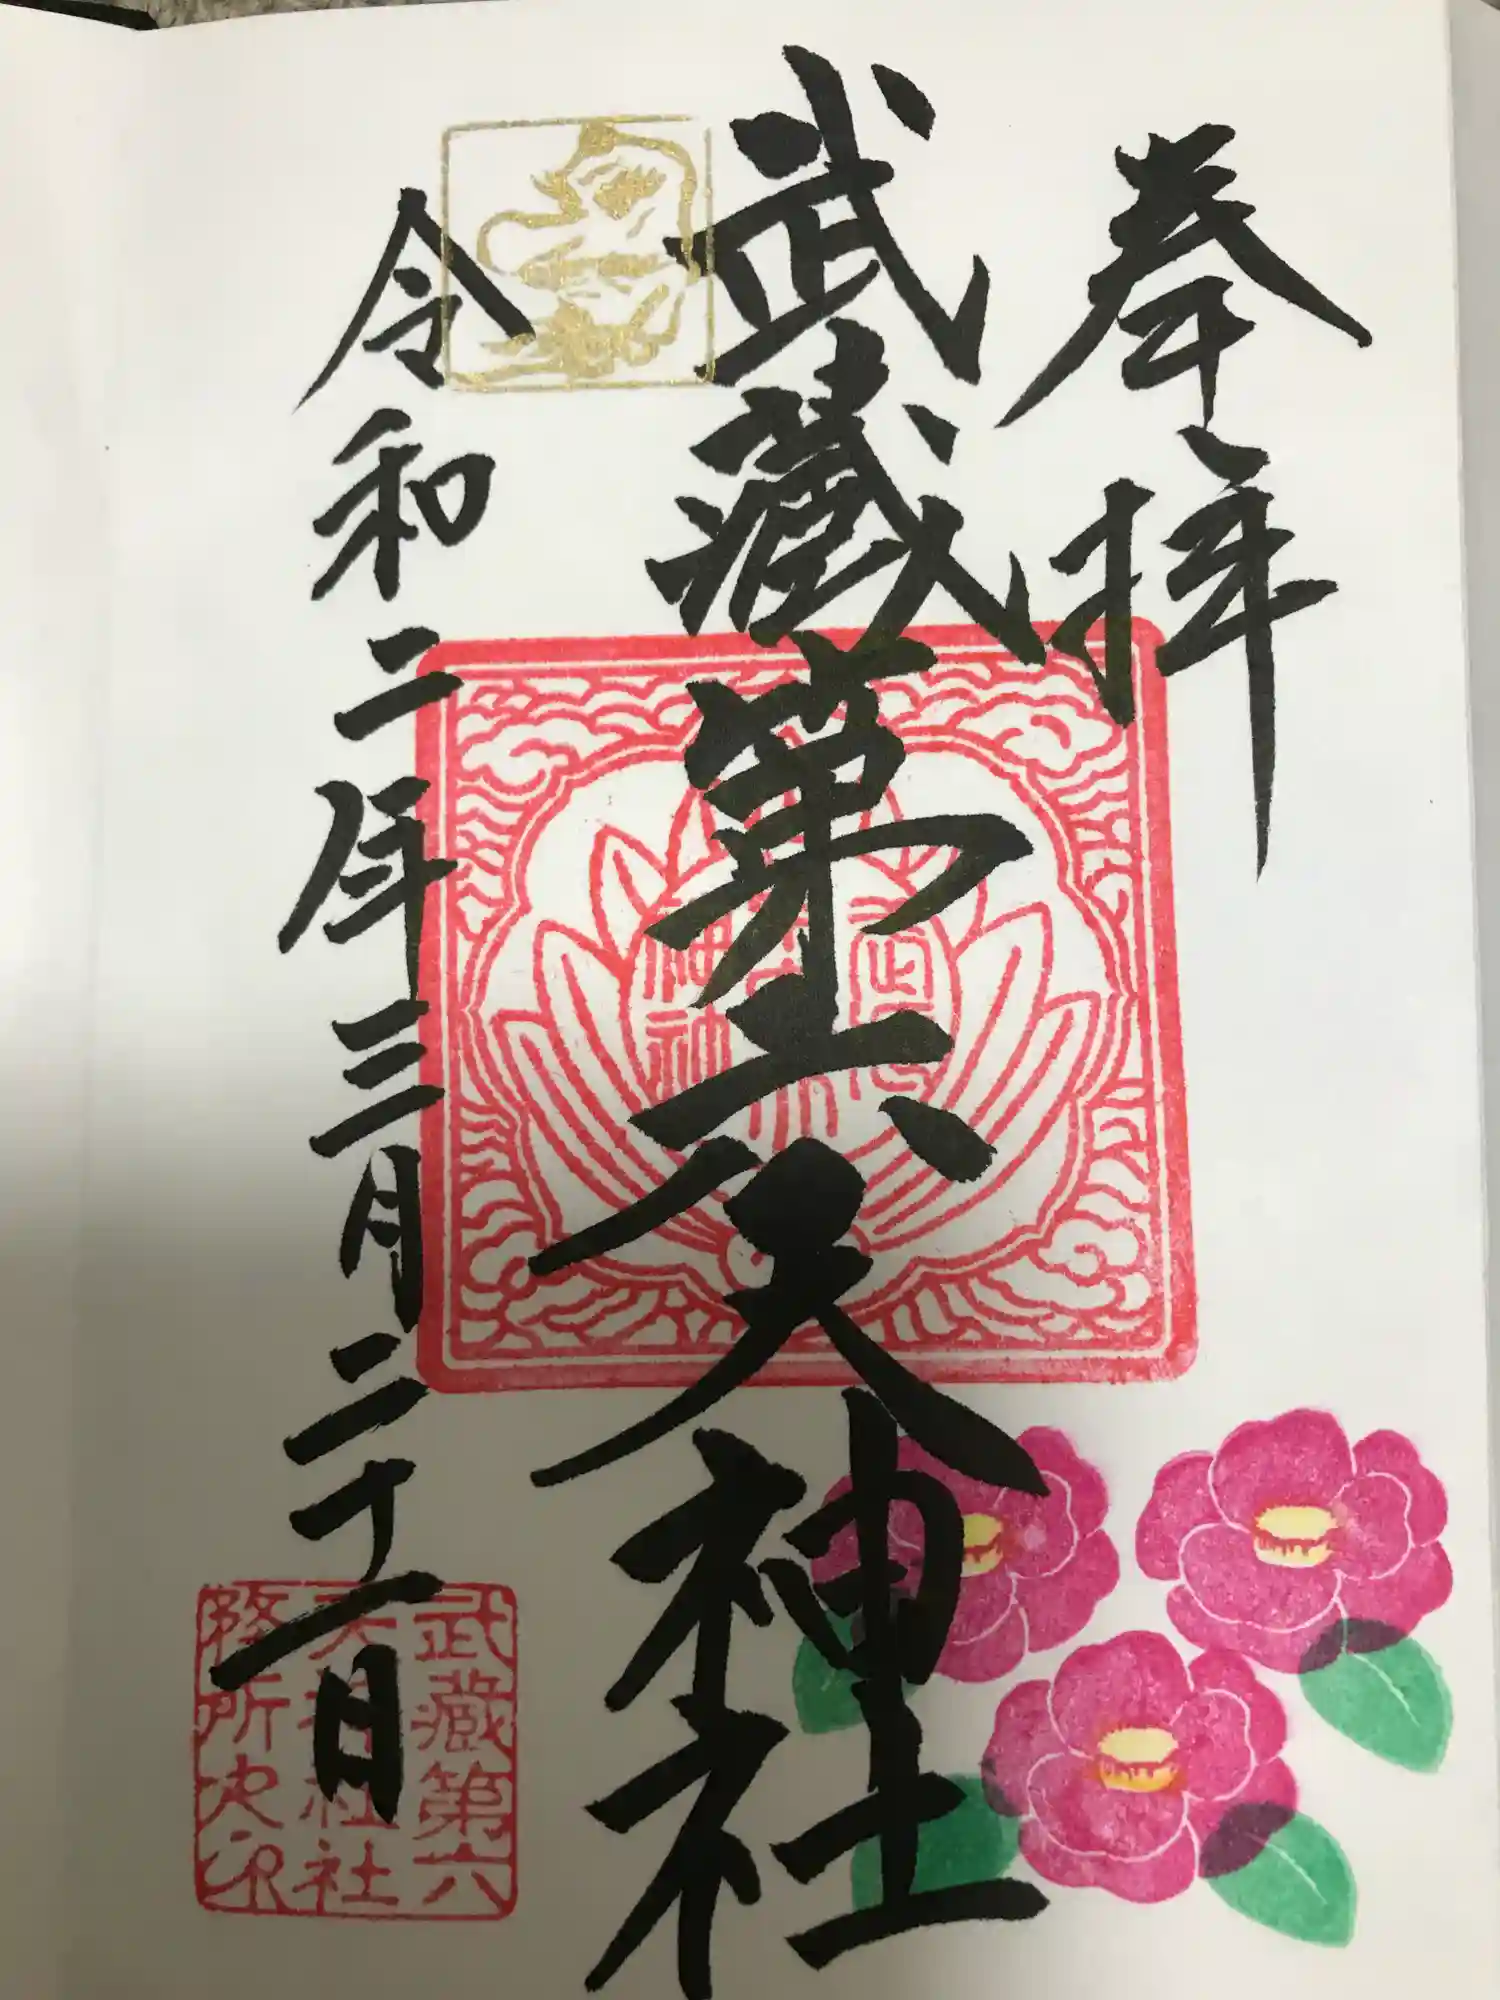 奉拝
武藏第六天神社
令和二年三月二十一日
武藏第六
天神社社
務所之印